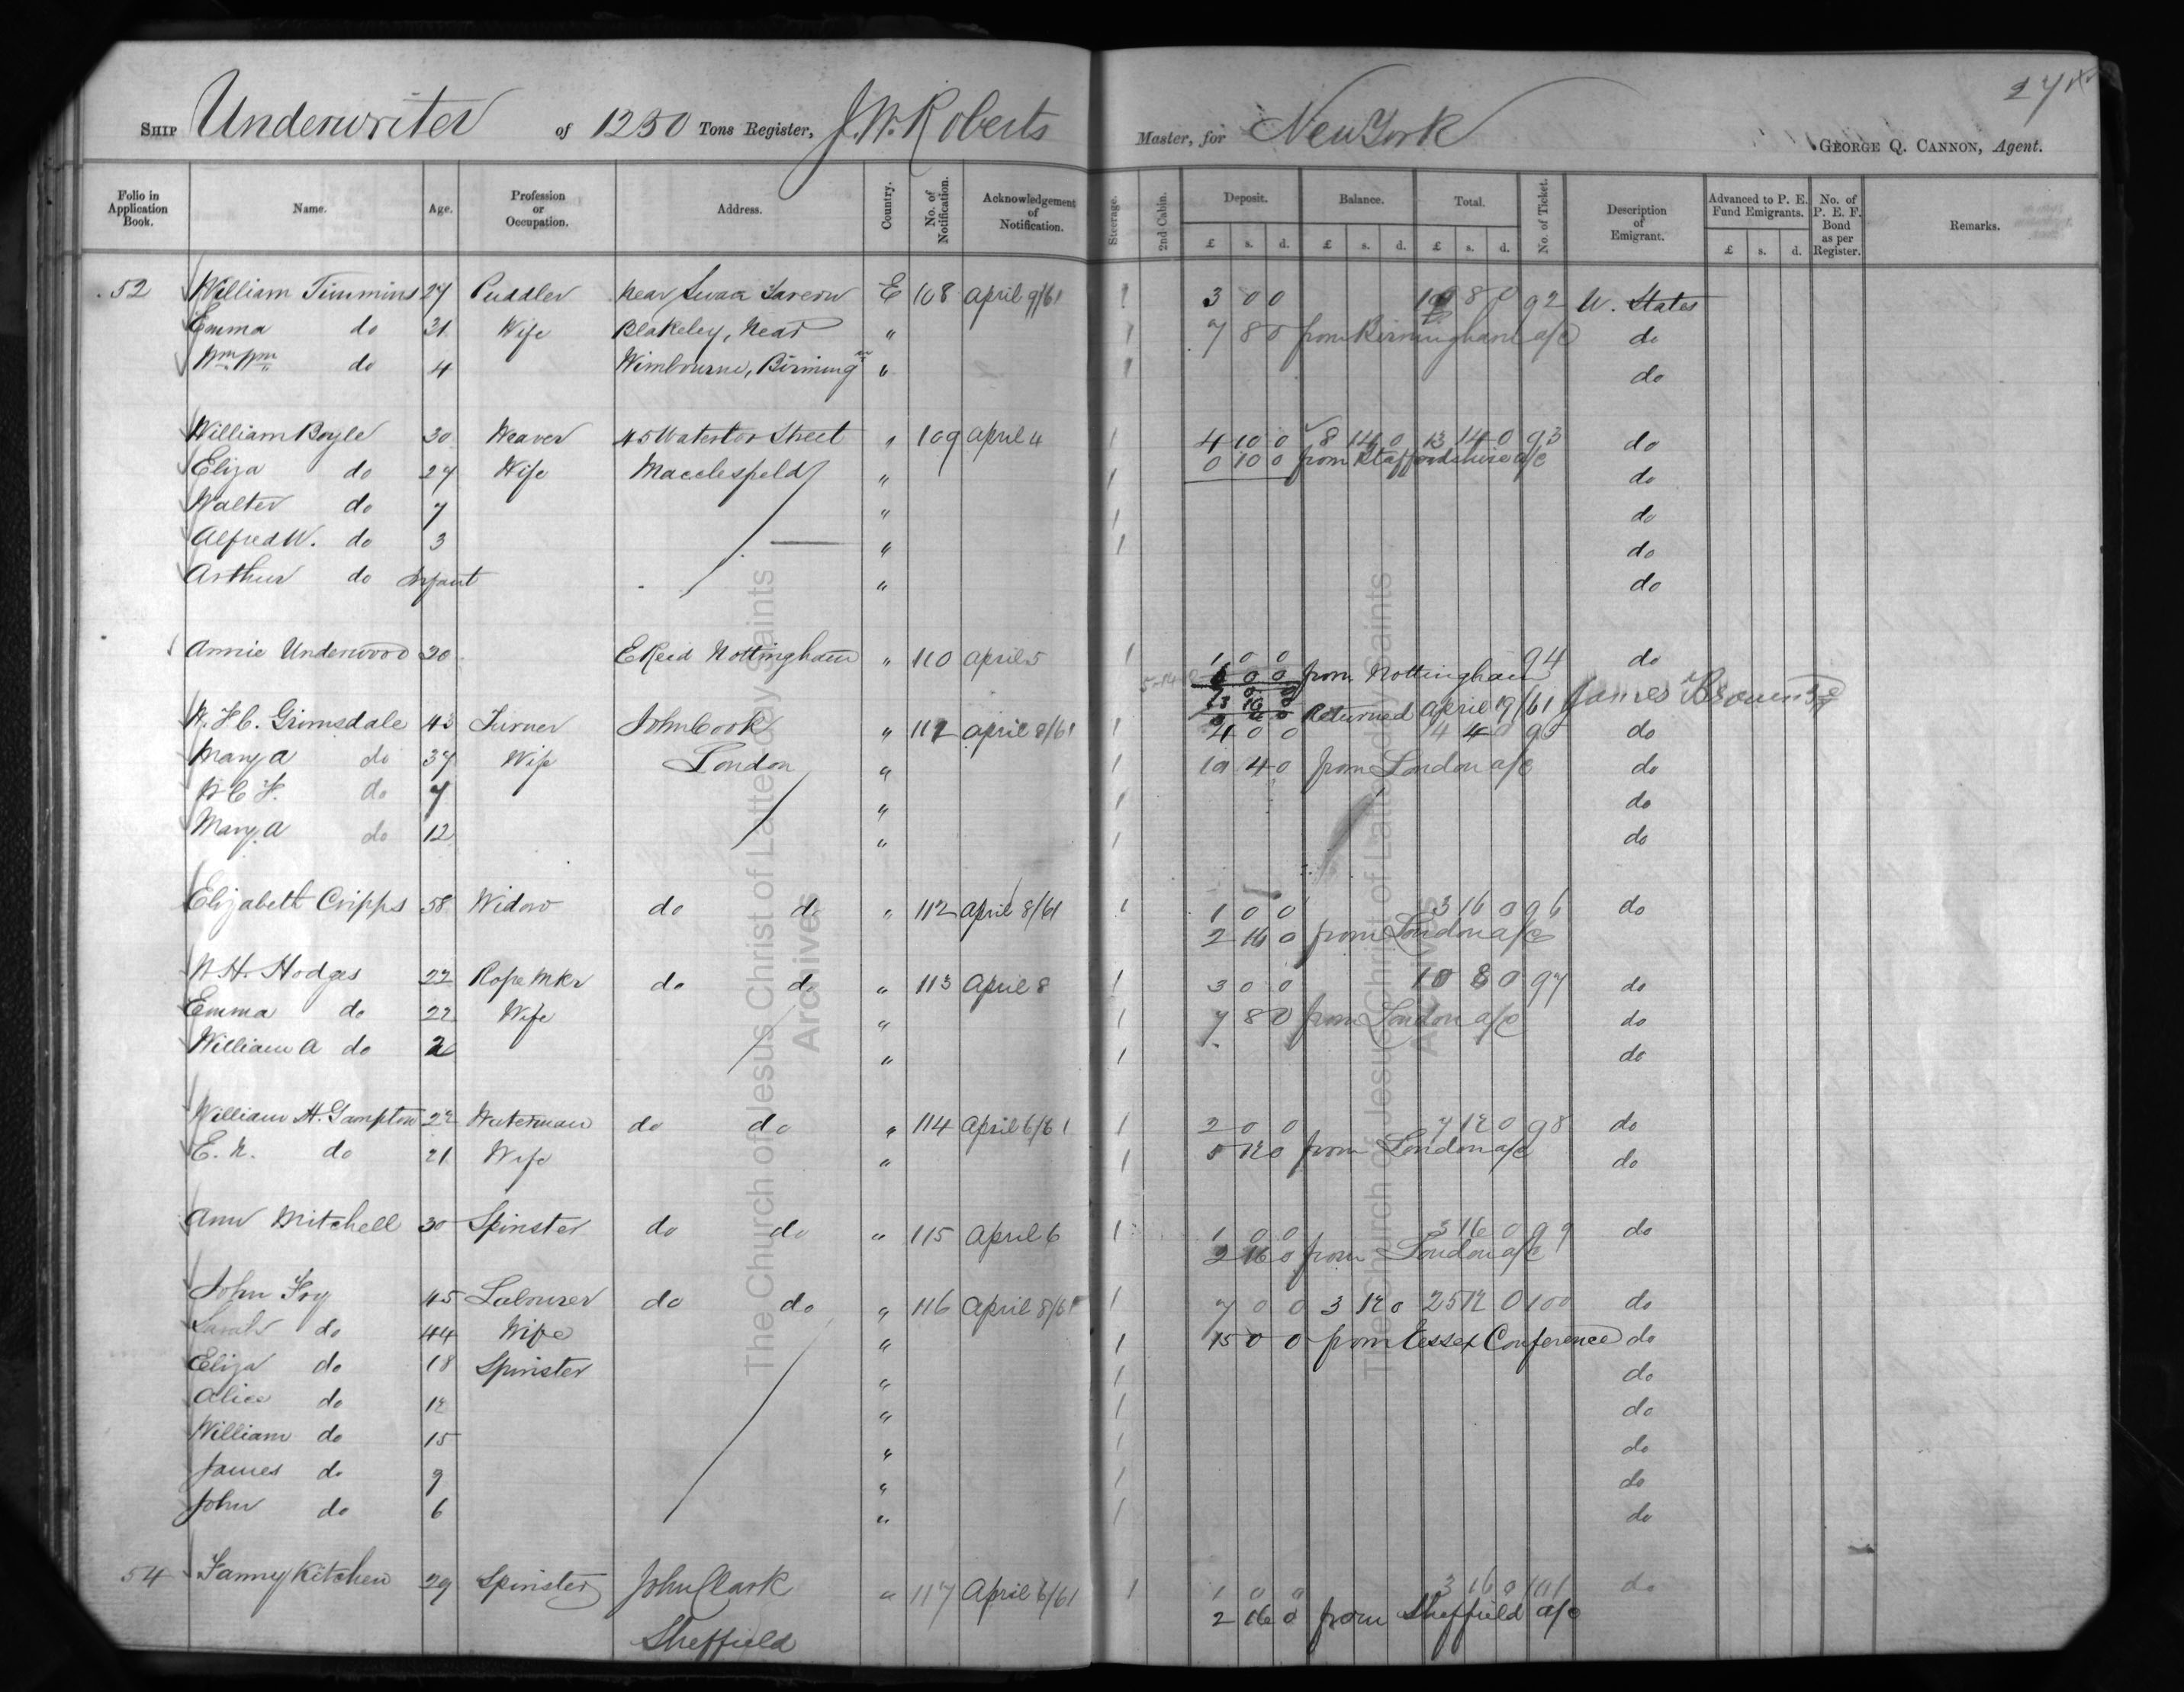 274
SHIP Underwriter of 1250 Tons Register, J. W. Roberts Master, for New York GEORGE Q. CANNON, Agent.
Folio in Application Book. Name. Age. Profession or Occupation. Address. Country. No. of Notification. Acknowledgement of Notification. Steerage. 2nd Cabin. Deposit. Balance. Total. No. of Ticket. Description of Emigrant. Advanced to P. E. Fund Emigrants. No. of P. E. F. Bond as per Register. Remarks.
£ s. d. £ s. d. £ s. d. £ s. d.
52 William Timmins 27 Puddler Near Swan Tavern E 108 April 9/61 1 3 0 0 10 8 0 92 U. States
Emma do 31 Wife Blakeley, Near " 1 7 8 0 from Birmingham a/c do
Wm Wm do 4 Wimbourne, Birming m " 1 do
William Boyle 30 Weaver 45 Street " 109 April 4 1 4 10 0 8 14 0 13 14 0 93 do
Eliza do 27 Wife Macclesfield " 1 0 10 0 from Staffordshire a/c do
Walter do 7 " 1 do
Alfred W. do 3 " 1 do
Arthur do Infant " do
Annie Underwood 20 E Reid Nottingham " 110 April 5 1 1 0 0 94 do
0 0 from Nottingham
Returned April 19/61 James
W. F. C. Grimsdale 43 Turner John Cook " 111 April 8/61 1 4 0 0 14 4 0 95 do
Mary A do 37 Wife London " 1 10 4 0 from London a/c do
W C F. do 7 " 1 do
Mary. A do 12 " 1 do
Elizabeth Cripps 58 Widow do do " 112 April 8/61 1 1 0 0 3 16 0 96 do
2 16 0 from London a/c
W H. Hodges 22 Rope Mkr do do " 113 April 8 1 3 0 0 10 8 0 97 do
Emma do 22 Wife " 1 7 8 0 from London a/c do
William A do 2 " 1 do
William H. Gampton 22 Waterman do do " 114 April 6/61 1 2 0 0 7 12 0 98 do
E. N. do 21 Wife " 1 5 12 0 from London a/c do
Ann Mitchell 30 Spinster do do " 115 April 6 1 1 0 0 3 16 0 99 do
2 16 0 from London a/c
John Foy 45 Labourer do do " 116 April 8/61 1 7 0 0 3 12 0 25 12 0 100 do
Sarah do 44 Wife " 1 15 0 0 from Essex Conference do
Eliza do 18 Spinster " 1 do
Alice do 12 " 1 do
William do 15 " 1 do
James do 9 " 1 do
John do 6 " 1 do
54 Fanny Kitchen 29 Spinster John Clark " 117 April 6/61 1 1 0 0 3 16 0 101 do
Sheffield 2 16 0 from Sheffield a/c
The Church of Jesus Christ of Latter-day Saints
Archives
The Church of Jesus Christ of Latter-day Saints
Archives